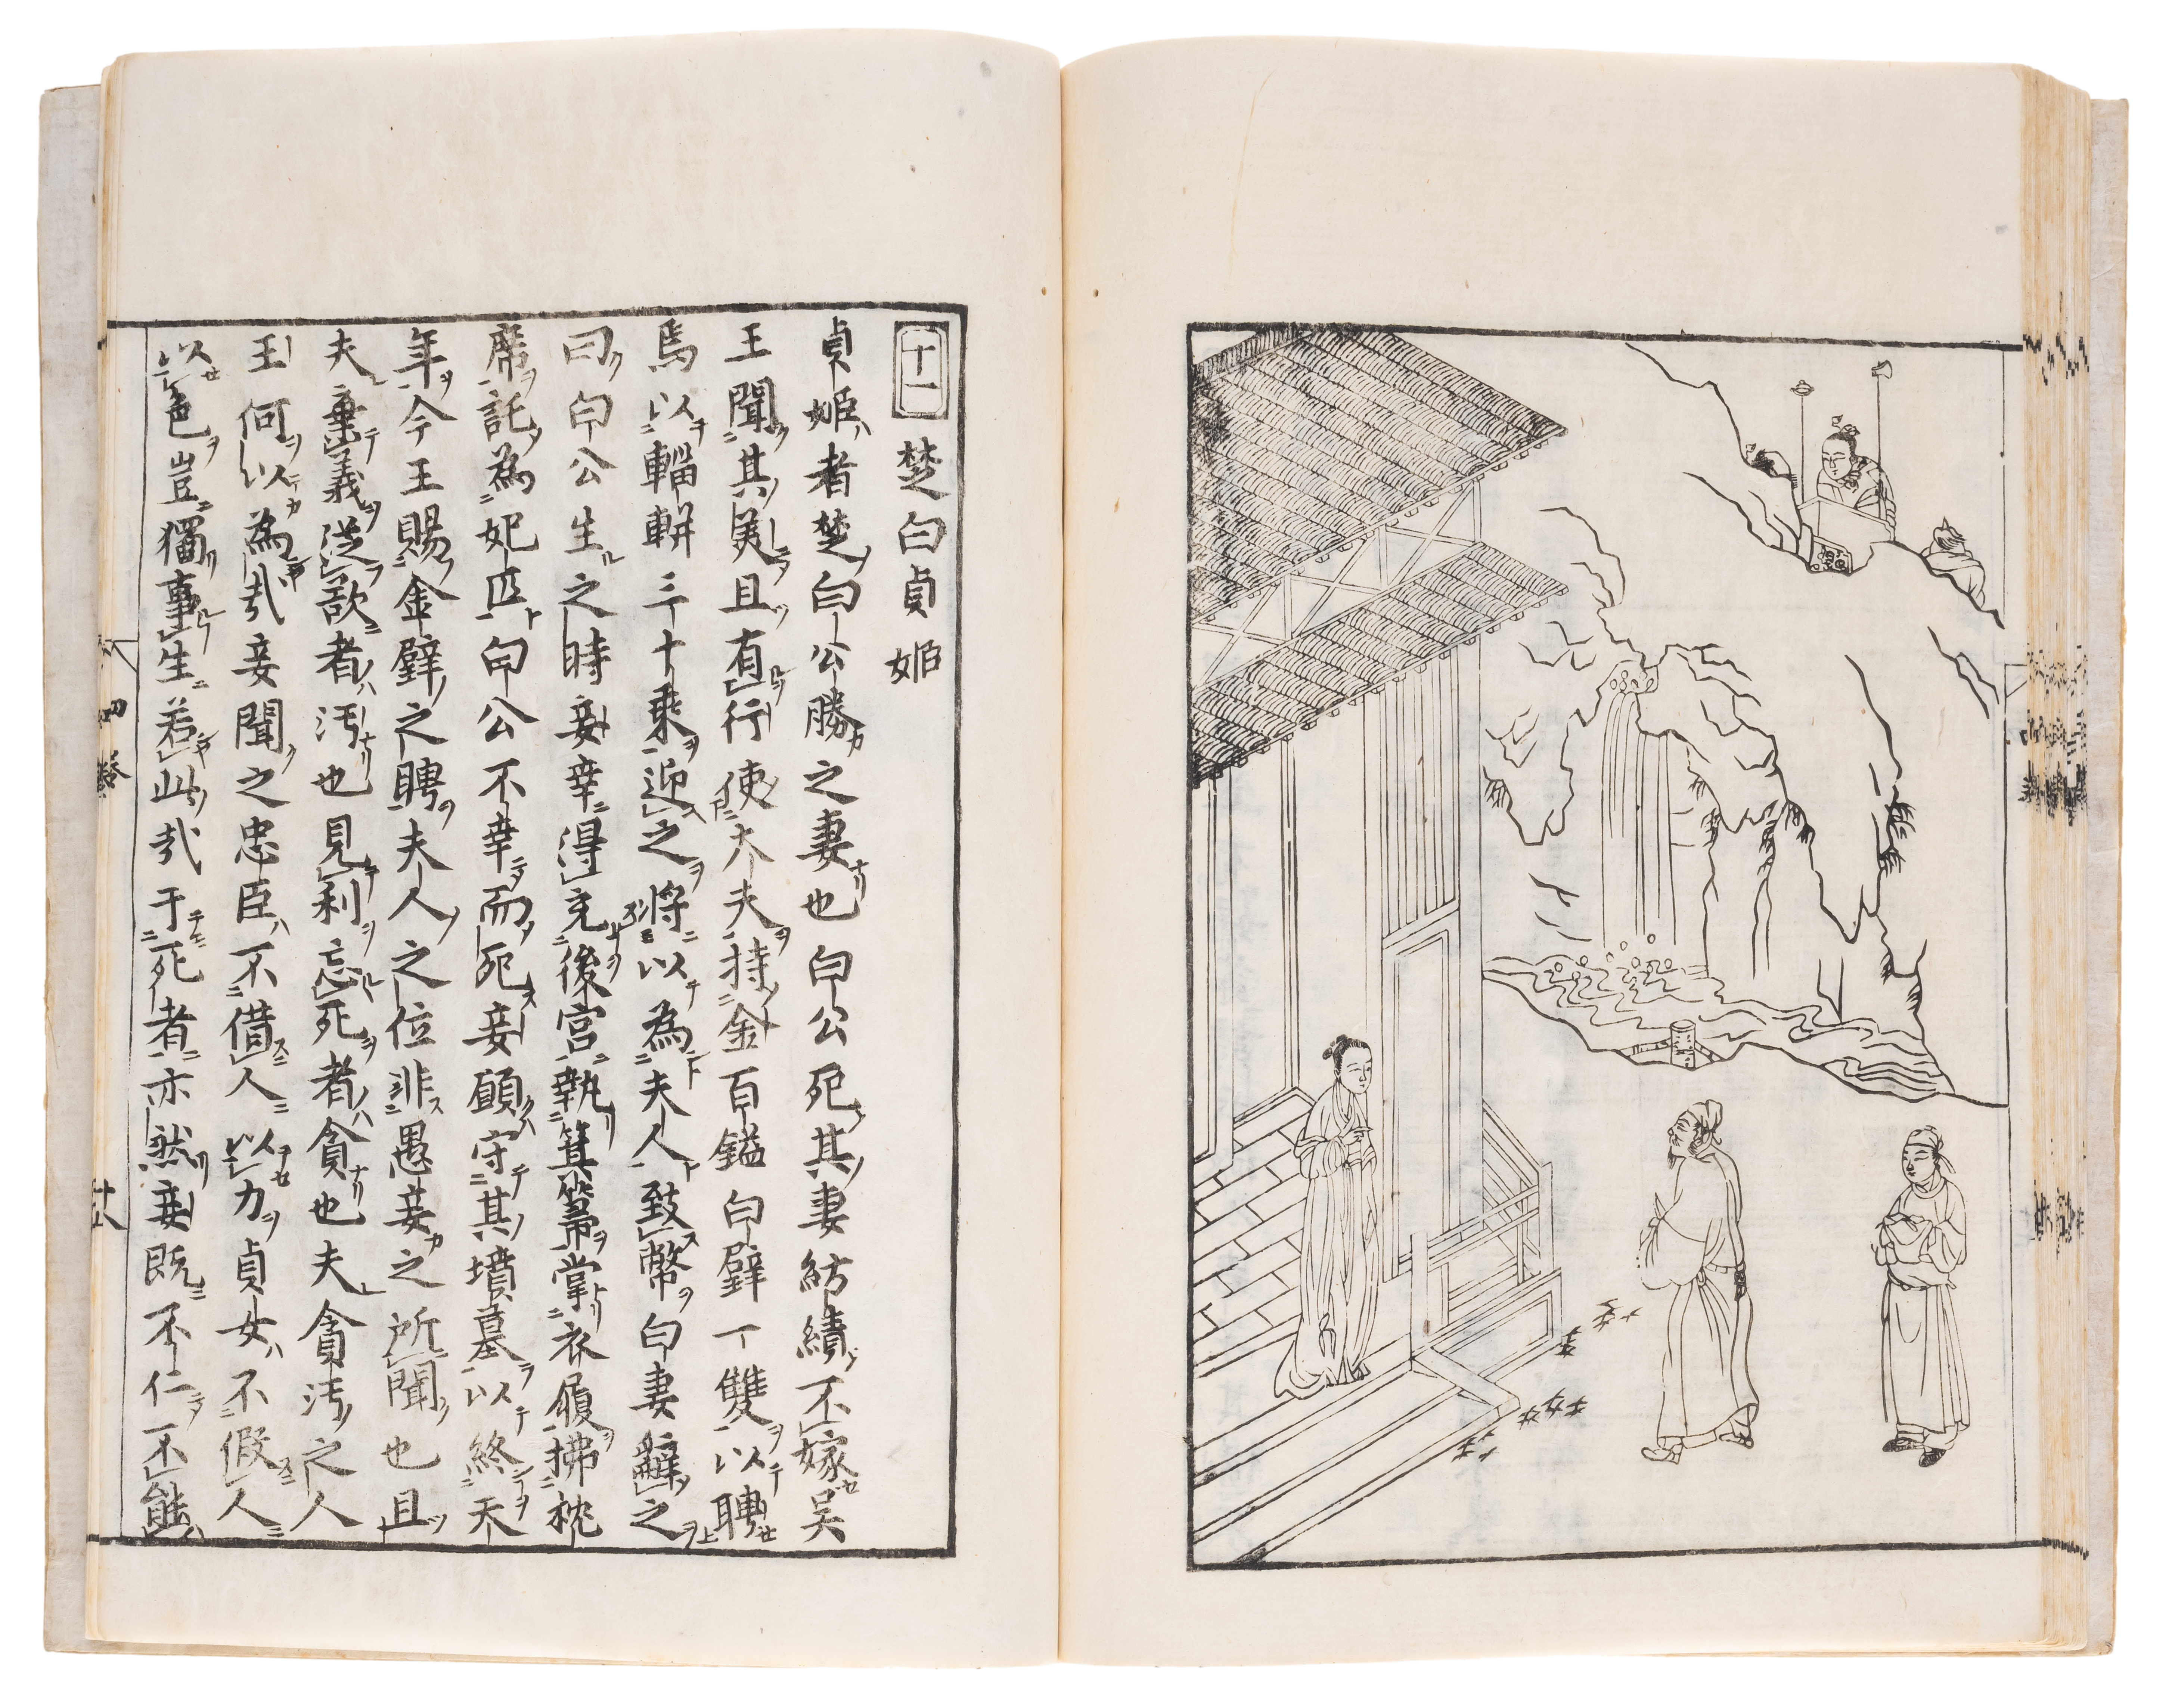 十一 楚白貞姬
貞姬者楚白公勝之妻也白公死其妻紡績不嫁吳
王聞其美且有行使大夫持金百鎰白璧一雙以聘
焉以輜軿三十乘迎之將以為夫人大夫致幣白妻辭之
曰白公生之時妾幸得充後宮執箕箒掌衣履拂枕
席託為妃匹白公不幸而死妾願守其墳墓以終天
年今王賜金璧之聘夫人之位非愚妾之所聞也且
夫棄義從欲者汚也見利忘死者貪也夫貪汚之人
王何以為哉妾聞之忠臣不借人以力貞女不假人
以色豈獨事生若此哉于死者亦然妾既不仁不能
四卷